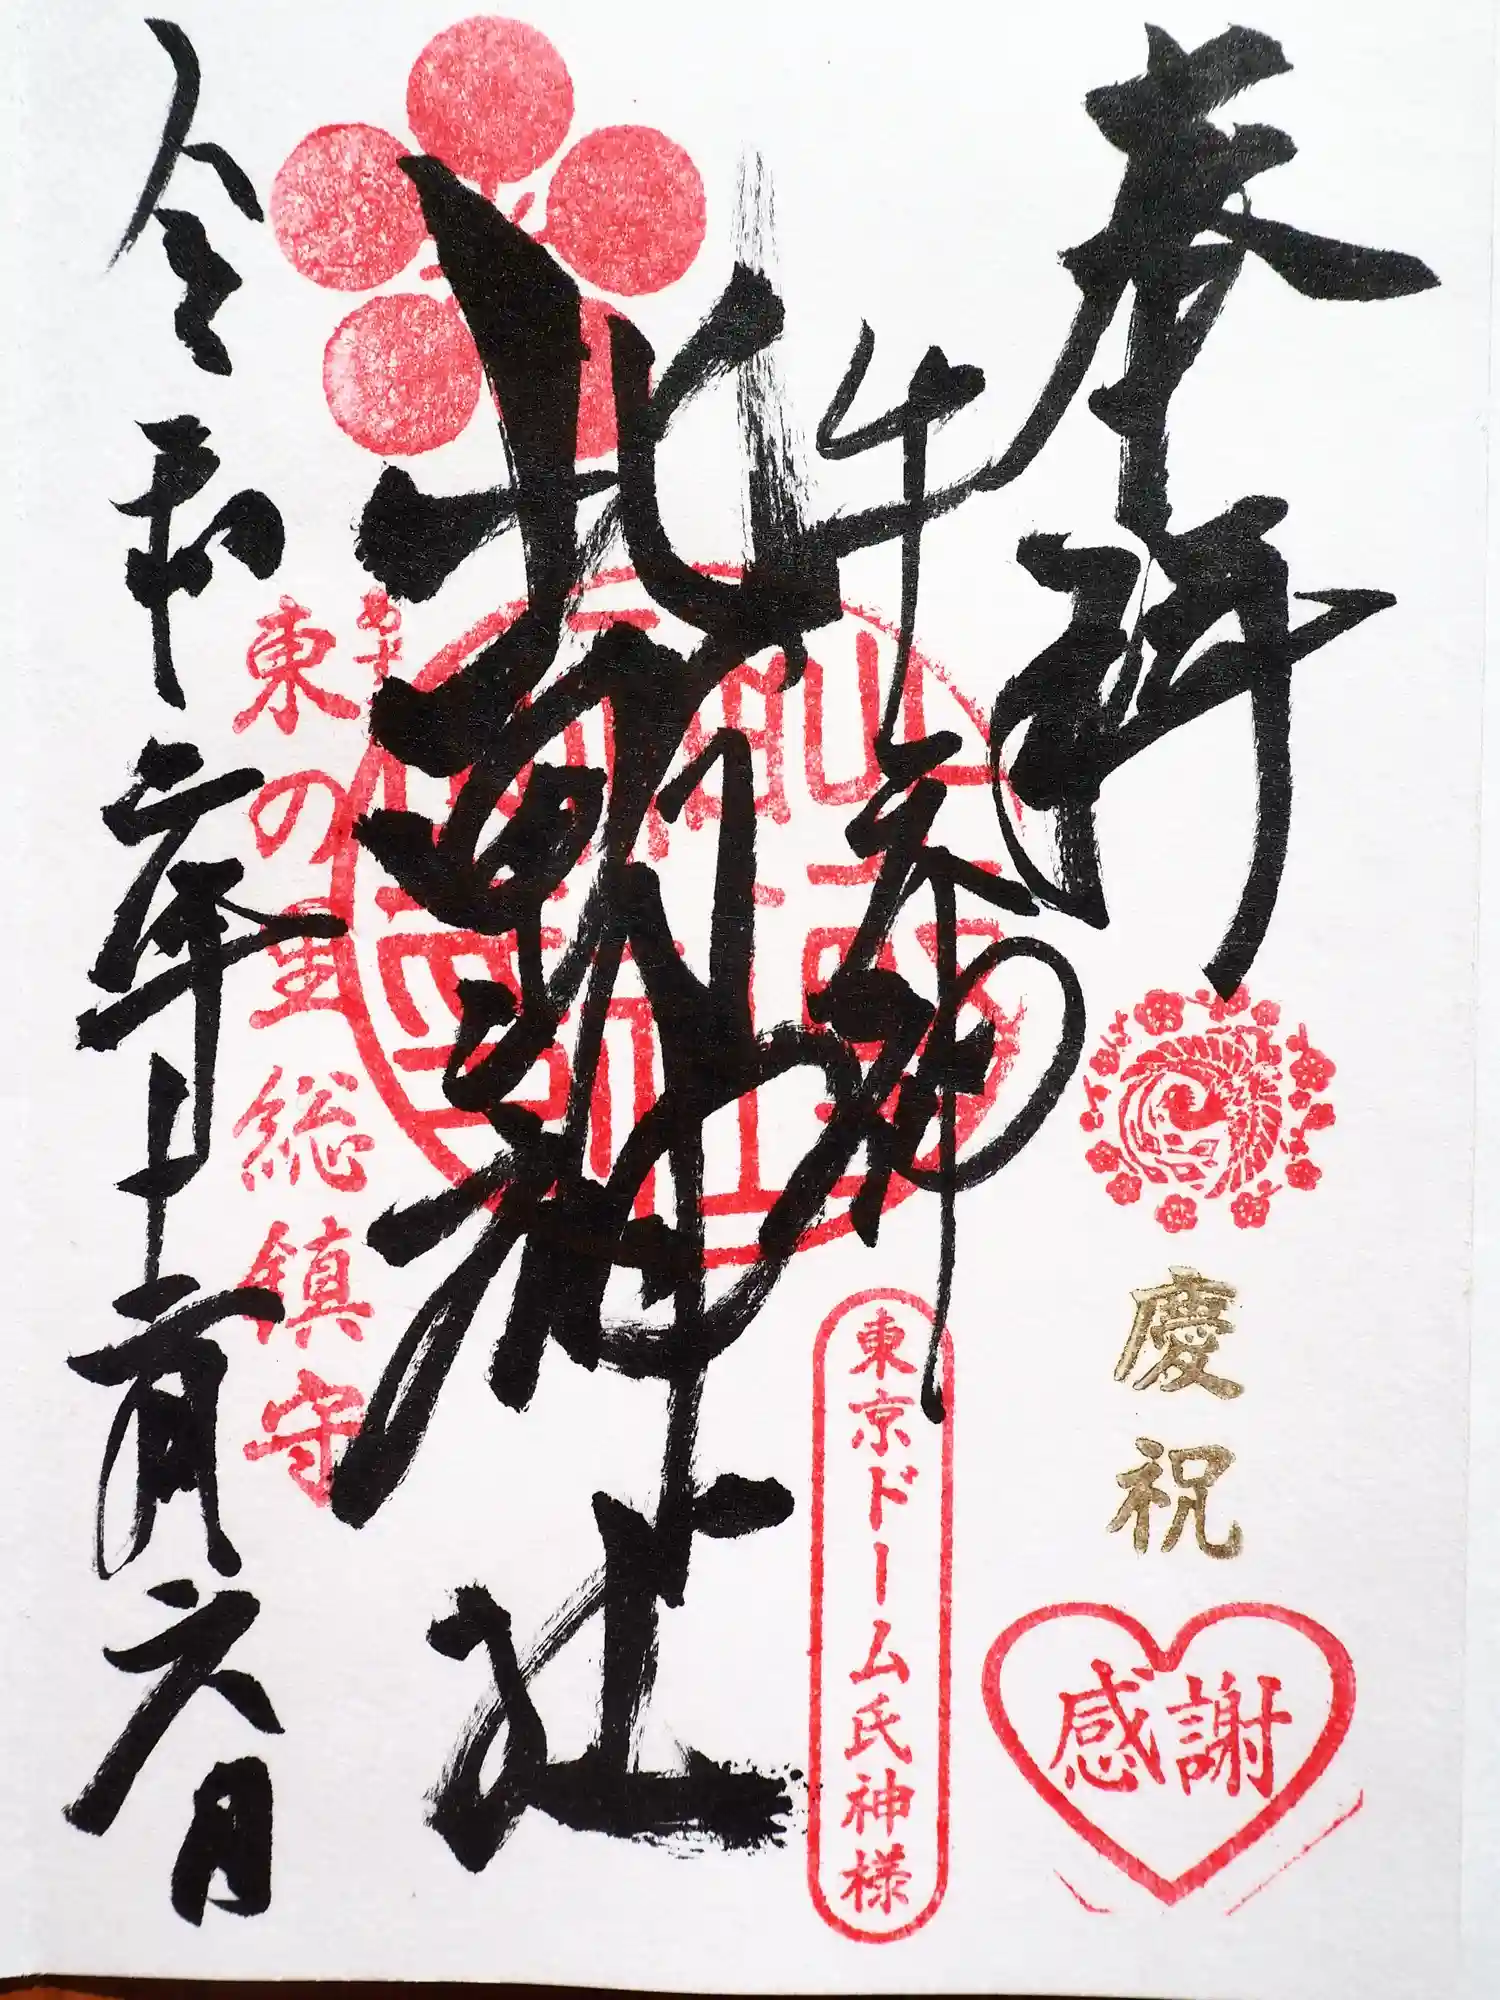 奉拝
慶祝
感謝
牛天神
東京ドーム氏神様
北野神社
あずま
東の里総鎮守
令和六年十二月六日